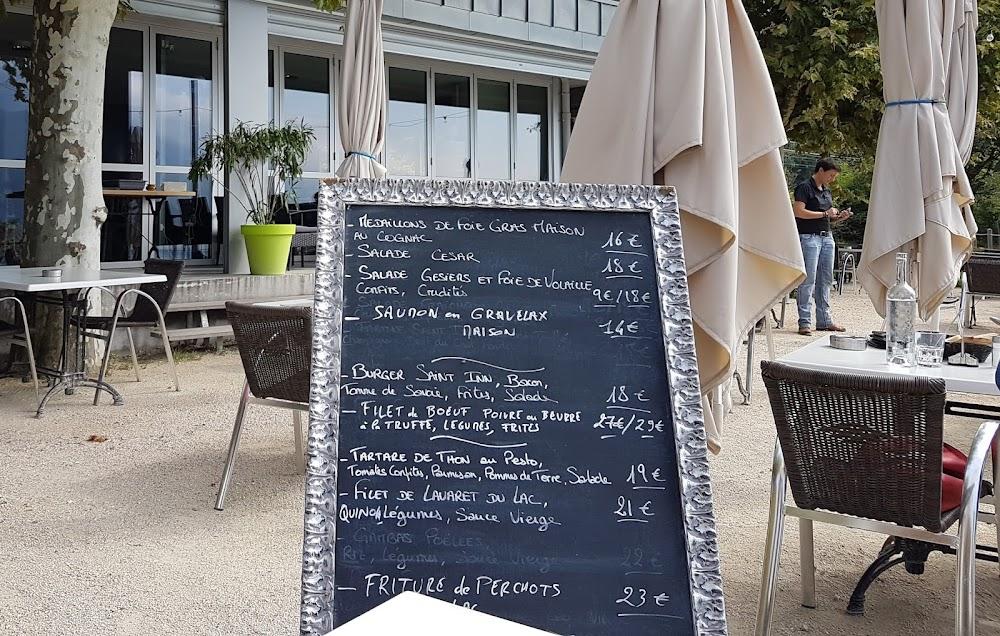 - MEDAILLONS DE FOIE GRAS MAISON
AU COGNAC 16 €
- SALADE CESAR 18 €
- SALADE GESIERS ET FOIE DE VOLAILLE
CONFITS, Crudités 9€/18€
- SAUMON en GRAVELAX
MAISON 14 €
- BURGER SAINT INN, Bacon,
Tomme de Savoie, Frites, Salade 18 €
- FILET de BOEUF POIVRE ou BEURRE
à la TRUFFE, LEGUMES, FRITES 27€/29€
- TARTARE DE THON au Pesto,
Tomates Confites, Parmesan, Pommes de Terre, Salade 19 €
- FILET DE LAVARET DU LAC,
QUINOA Légumes, Sauce Vierge 21 €
- GAMBAS POÊLEES
Légumes, Sauce Vierge 22 €
- FRITURE de PERCHOTS 23 €